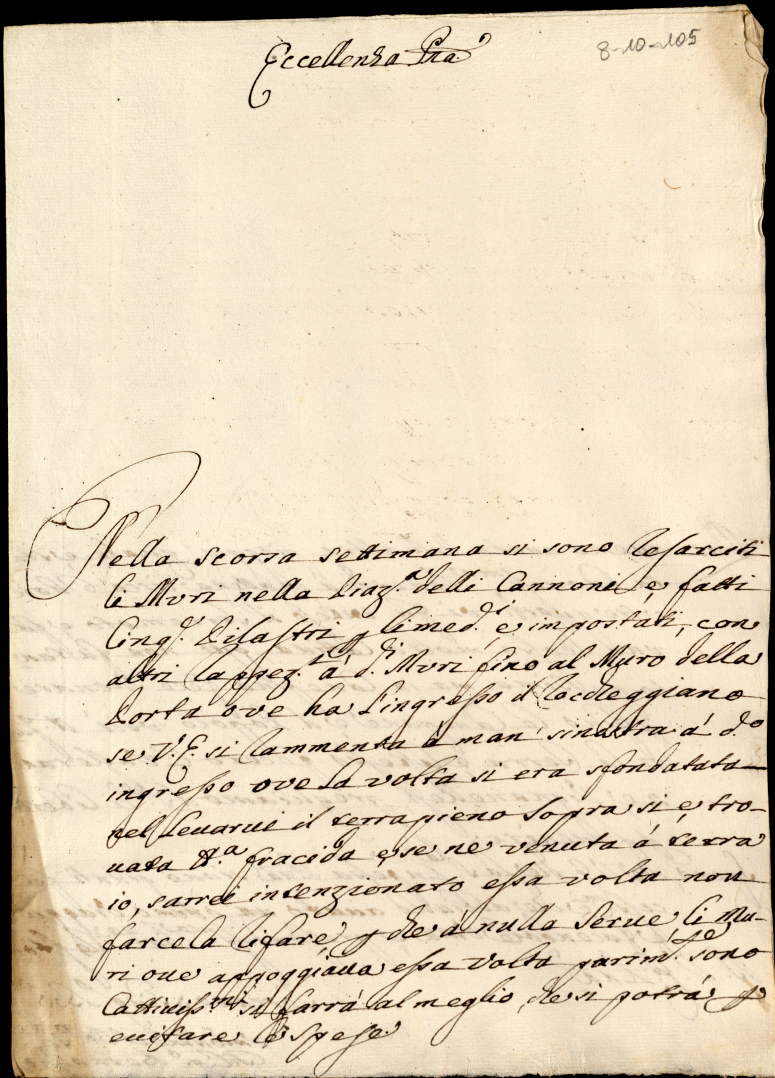 Eccellenza Pra.
8-10-105
Nella scorsa settimana si sono resarciti
li Muri nella Piaz.a delli Cannoni e, fatti
Cinq.e Pilastri p li med.i e impostati, con
altri rappez.ti á d.i Muri fino al Muro della
Porta ove ha l'ingresso il
se V.E. si rammenta á man' sinistra á d.o
ingresso ove la volta si era sfondatata
nel levarvi il terrapieno sopra si e, tro-
uata t.a fracida e, se ne venuta á terra
io, sarrei intenzionato essa volta non
farcela rifare, p che á nulla serue, li Mu-
ri oue appoggiaua essa volta parim.te sono
Cattiuiss.mi si farrá al meglio, che si potrá p
euitare le spese